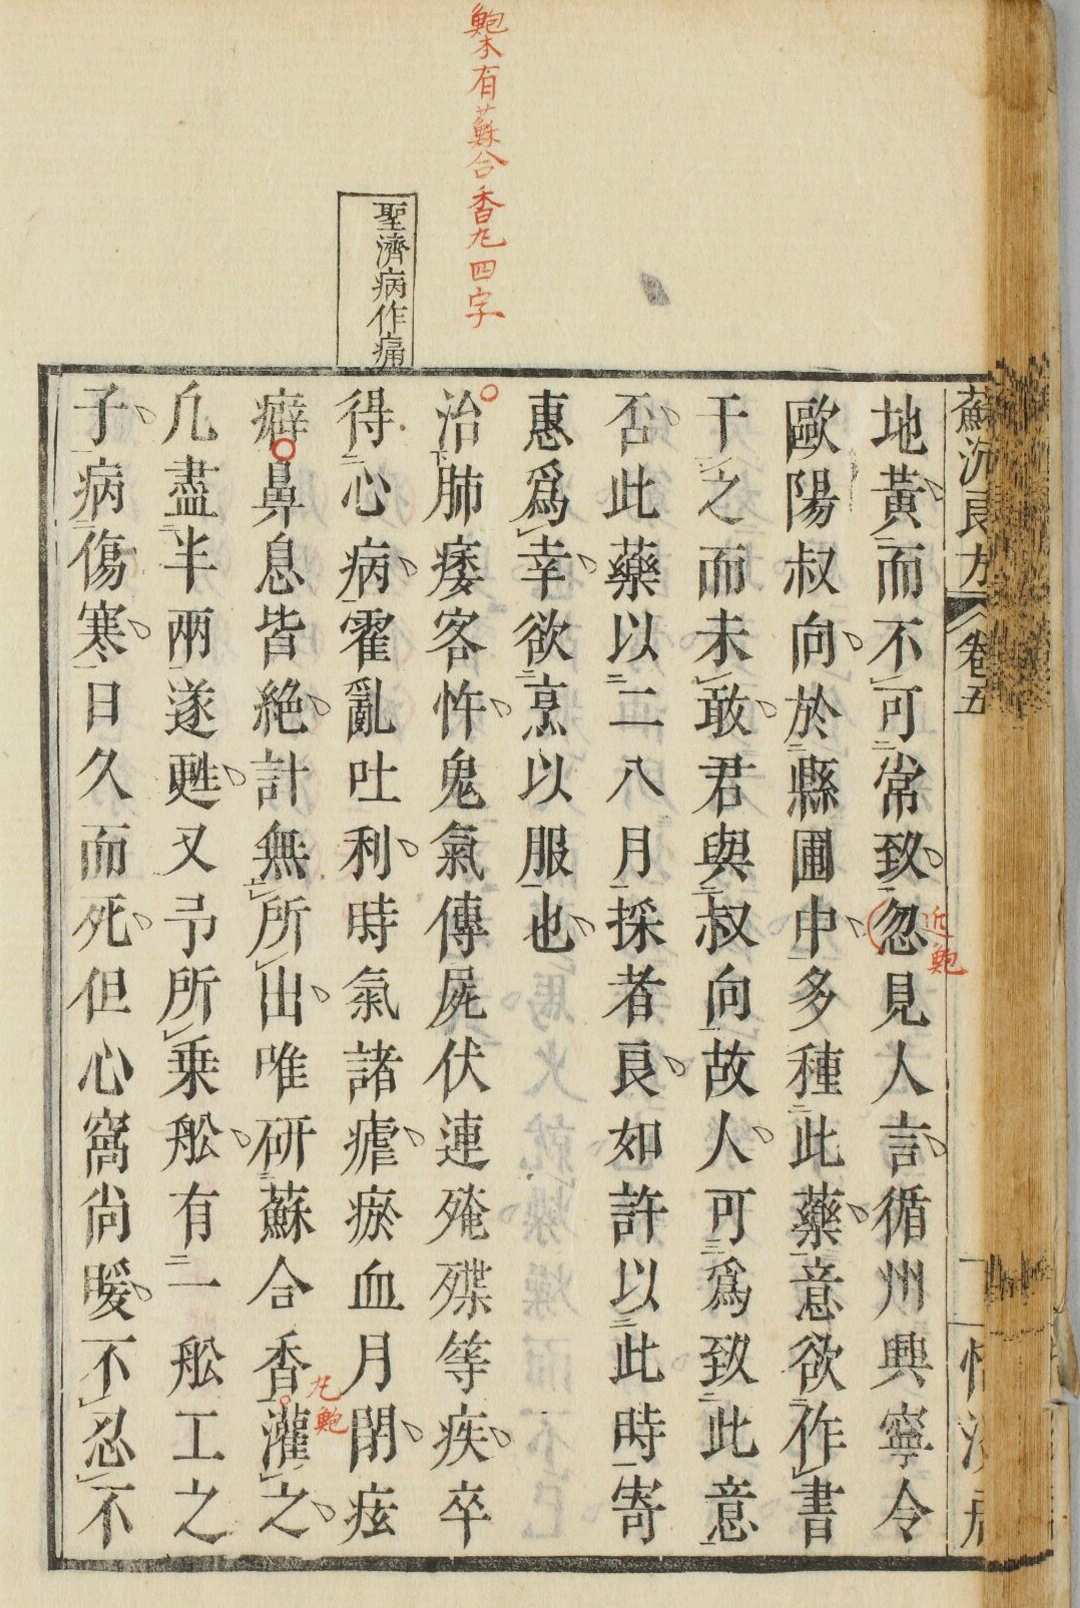 鮑本有蘇合香丸四字
聖濟病作痛
蘇沉良方 卷五
地黃而不可常致忽見人言循州興寧令
近鮑
歐陽叔向於縣圃中多種此藥意欲作書
干之而未敢君與叔向故人可爲致此意
否此藥以二八月採者良如許以此時寄
惠爲幸欲烹以服也
治肺痿客忤鬼氣傳屍伏連殗殜等疾卒
得心病霍亂吐利時氣諸瘧瘀血月閉痃
癖鼻息皆絶計無所出唯研蘇合香灌之
丸鮑
凢盡半兩遂甦又予所乗舩有一舩工之
子病傷寒日久而死但心窩尙暖不忍不